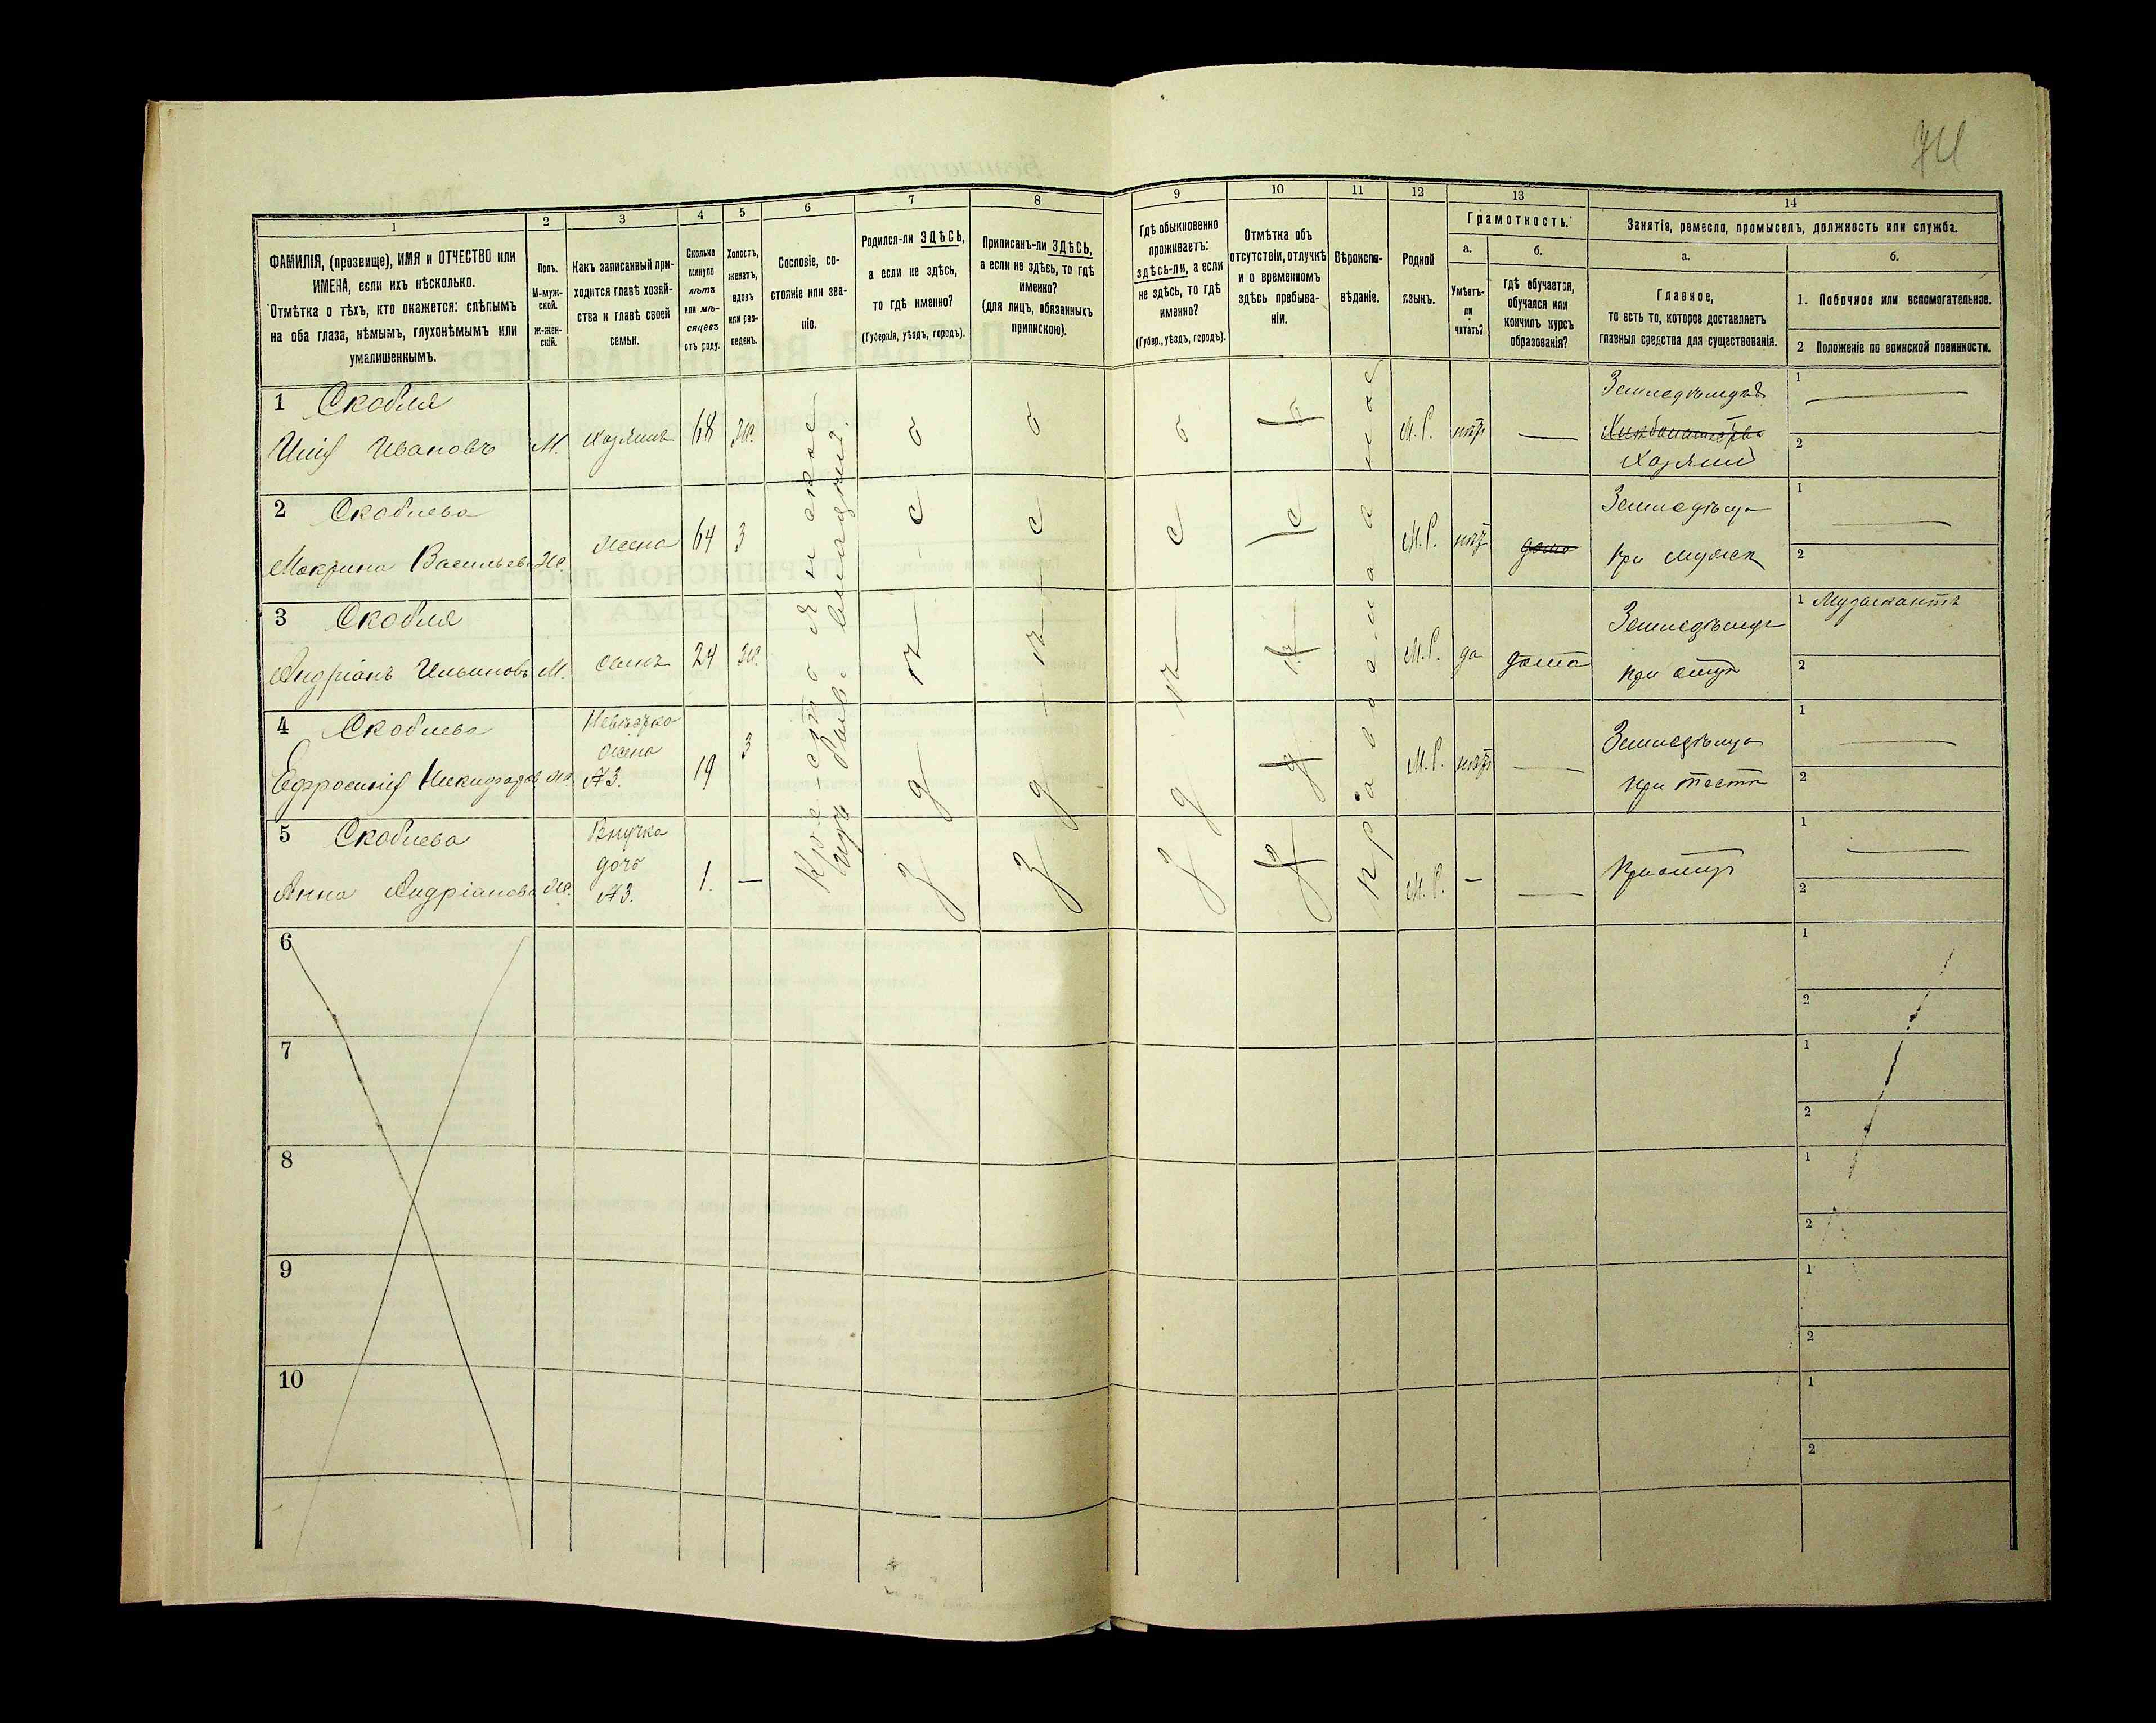 1
2
3
4
5
6
7
8
ФАМИЛІЯ, (прозвище), ИМЯ и ОТЧЕСТВО или
ИМЕНА, если ихъ нѣсколько.
Отмѣтка о тѣхъ, кто окажется: слѣпымъ
на оба глаза, нѣмымъ, глухонѣмымъ или
умалишеннымъ.
Полъ.
М-муж-
ской.
ж-жен-
скій.
Какъ записанный при-
ходится главѣ хозяй-
ства и главѣ своей
семьи.
Сколько
минуло
лѣтъ
или мѣ-
сяцевъ
отъ роду.
Холостъ,
женатъ,
вдовъ
или раз-
веденъ.
Сословіе, со-
стояніе или зва-
ніе.
Родился-ли ЗДѢСЬ,
а если не здѣсь,
то гдѣ именно?
(Губернія, уѣздъ, городъ).
Приписанъ-ли ЗДѢСЬ,
а если не здѣсь, то гдѣ
именно?
(для лицъ, обязанныхъ
припискою).
9
10
11
12
13
14
Гдѣ обыкновенно
проживаетъ:
здѣсь-ли, а если
не здѣсь, то гдѣ
именно?
(Губер., уѣздъ, городъ).
Отмѣтка объ
отсутствіи, отлучкѣ
и о временномъ
здѣсь пребыва-
ніи.
Вѣроиспо-
вѣданіе.
Родной
языкъ.
Грамотность.
а.
Умѣетъ-
ли
читать?
б.
Гдѣ обучается,
обучался или
кончилъ курсъ
образованія?
Занятія, ремесло, промыселъ, должность или служба.
а.
Главное,
то есть то, которое доставляетъ
главныя средства для существованія.
б.
1. Побочное или вспомогательное.
2 Положеніе по воинской повинности.
1 Скобля
Илія Ивановъ М. Хозяинъ 68 Ж. М. Р. нѣтъ —
Земледѣлецъ
Хозяинъ
1 —
2
2 Скоблева
Макрина Васильева Ж. жена 64 З М. Р. нѣтъ дома
Земледѣлца
при мужѣ
1 —
2
3 Скобля
Андріанъ Ильиновъ М. сынъ 24 Ж. М. Р. да дома
Земледѣлецъ
при отцѣ
1 Музыкантъ
2
4 Скоблева
Ефросинія Никифорова Ж.
Невѣстка
жена
№3.
19 З М. Р. нѣтъ —
Земледѣлца
при тестѣ
1 —
2
5 Скоблева
Анна Андріанова Ж.
Внучка
дочь
№3.
1. — М. Р. — —
При отцѣ
1 —
2
Крестьянское
здѣсь
здѣсь
здѣсь
здѣсь
православное
6
1
2
7
1
2
8
1
2
9
1
2
10
1
2